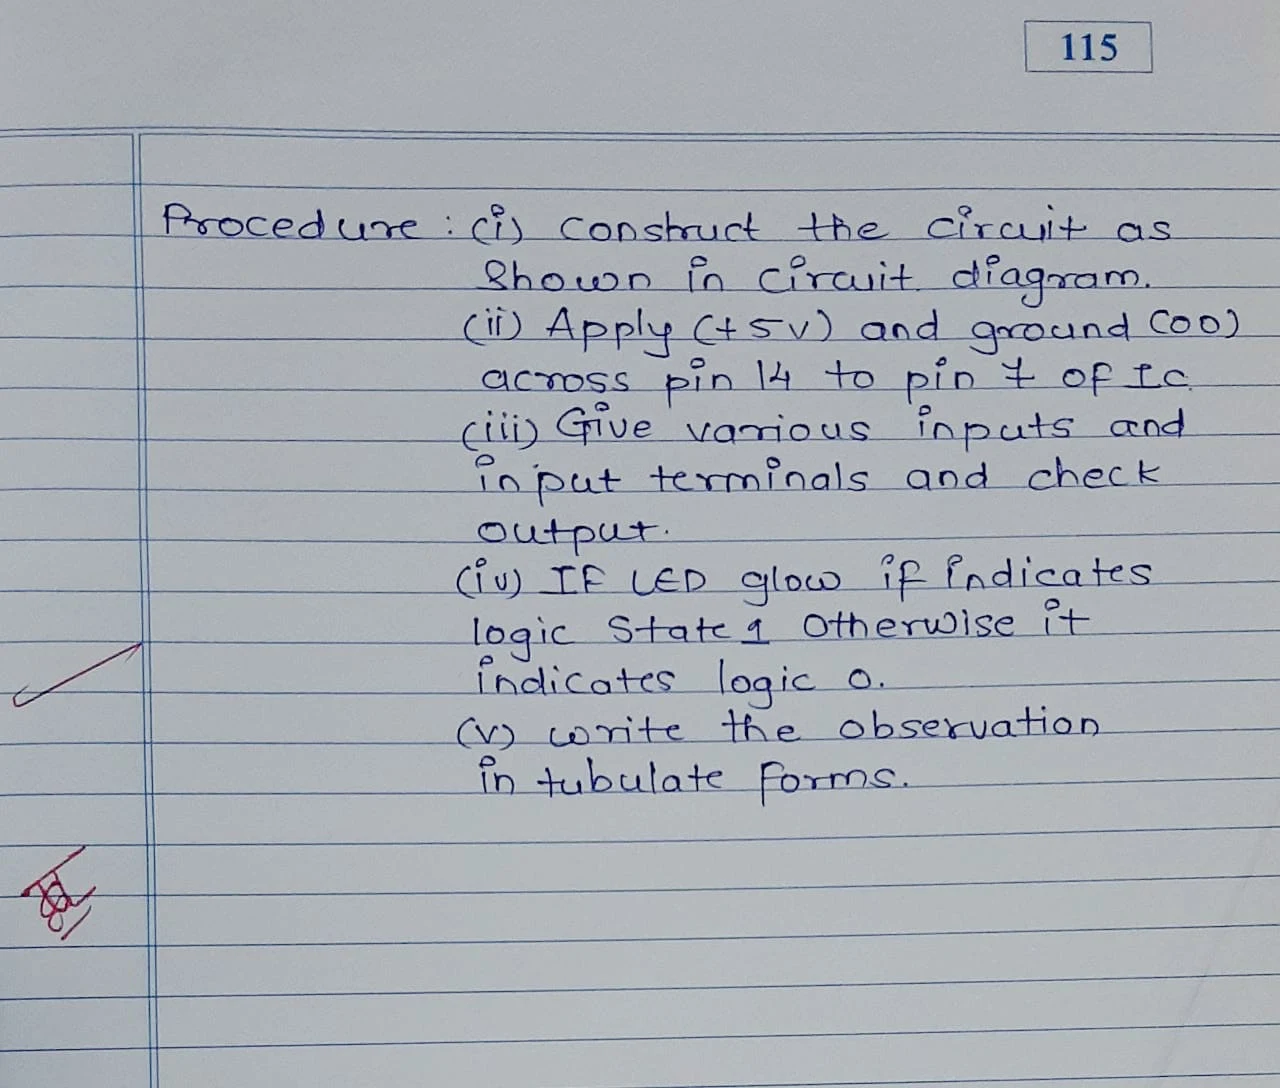 115
Procedure : (i) construct the circuit as
Shown in circuit diagram.
(ii) Apply (+5v) and ground (00)
across pin 14 to pin 7 of IC
(iii) Give various inputs and
input terminals and check
output.
(iv) IF LED glow if indicates
logic State 1 otherwise it
indicates logic 0.
(v) write the observation
in tubulate forms.